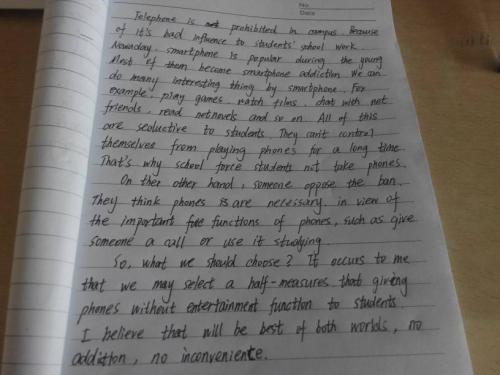 No
Date
Telephone is prohibited in campus. Because
of it's bad influence to students' school work.
Nowaday. smartphone is popular during the young
Most of them become smartphone addiction. We can
do many interesting thing by smartphone. For
example. play games. watch films. chat with net
friends, read netnovels and so on. All of this
are seductive to students. They can't control
themselves from playing phones for a long time.
That's why school force students not take phones.
On ther other hand, someone oppose the ban.
They think phones are necessary. in view of
the important functions of phones, such as give
someone a call or use it studying.
So, what we should choose? It occurs to me
that we may select a half-measures that giving
phones without entertainment function to students.
I believe that will be best of both worlds, no
addiction, no inconvenience.